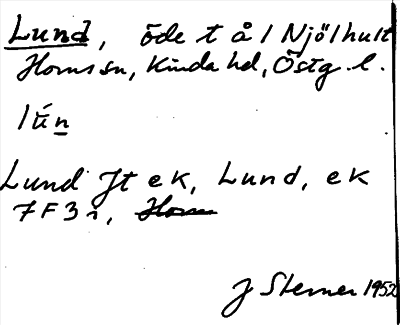 Lund, öde t å l Njölhult
Horns sn, Kinda hd, Östg. l.
lún
Lund Jt ek, Lund, ek
7F3i, Horn
J Sterner 1952